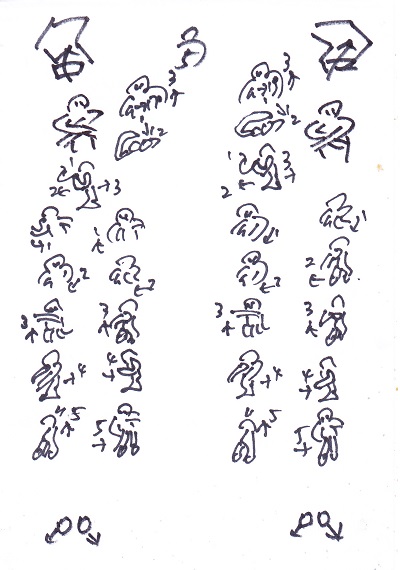 3 3
1 2 1 2
2 3 1 3
2 2
1 1 1 1
2 2 2 2
3 3 3 3
4 4 4 4
5 5 5 5